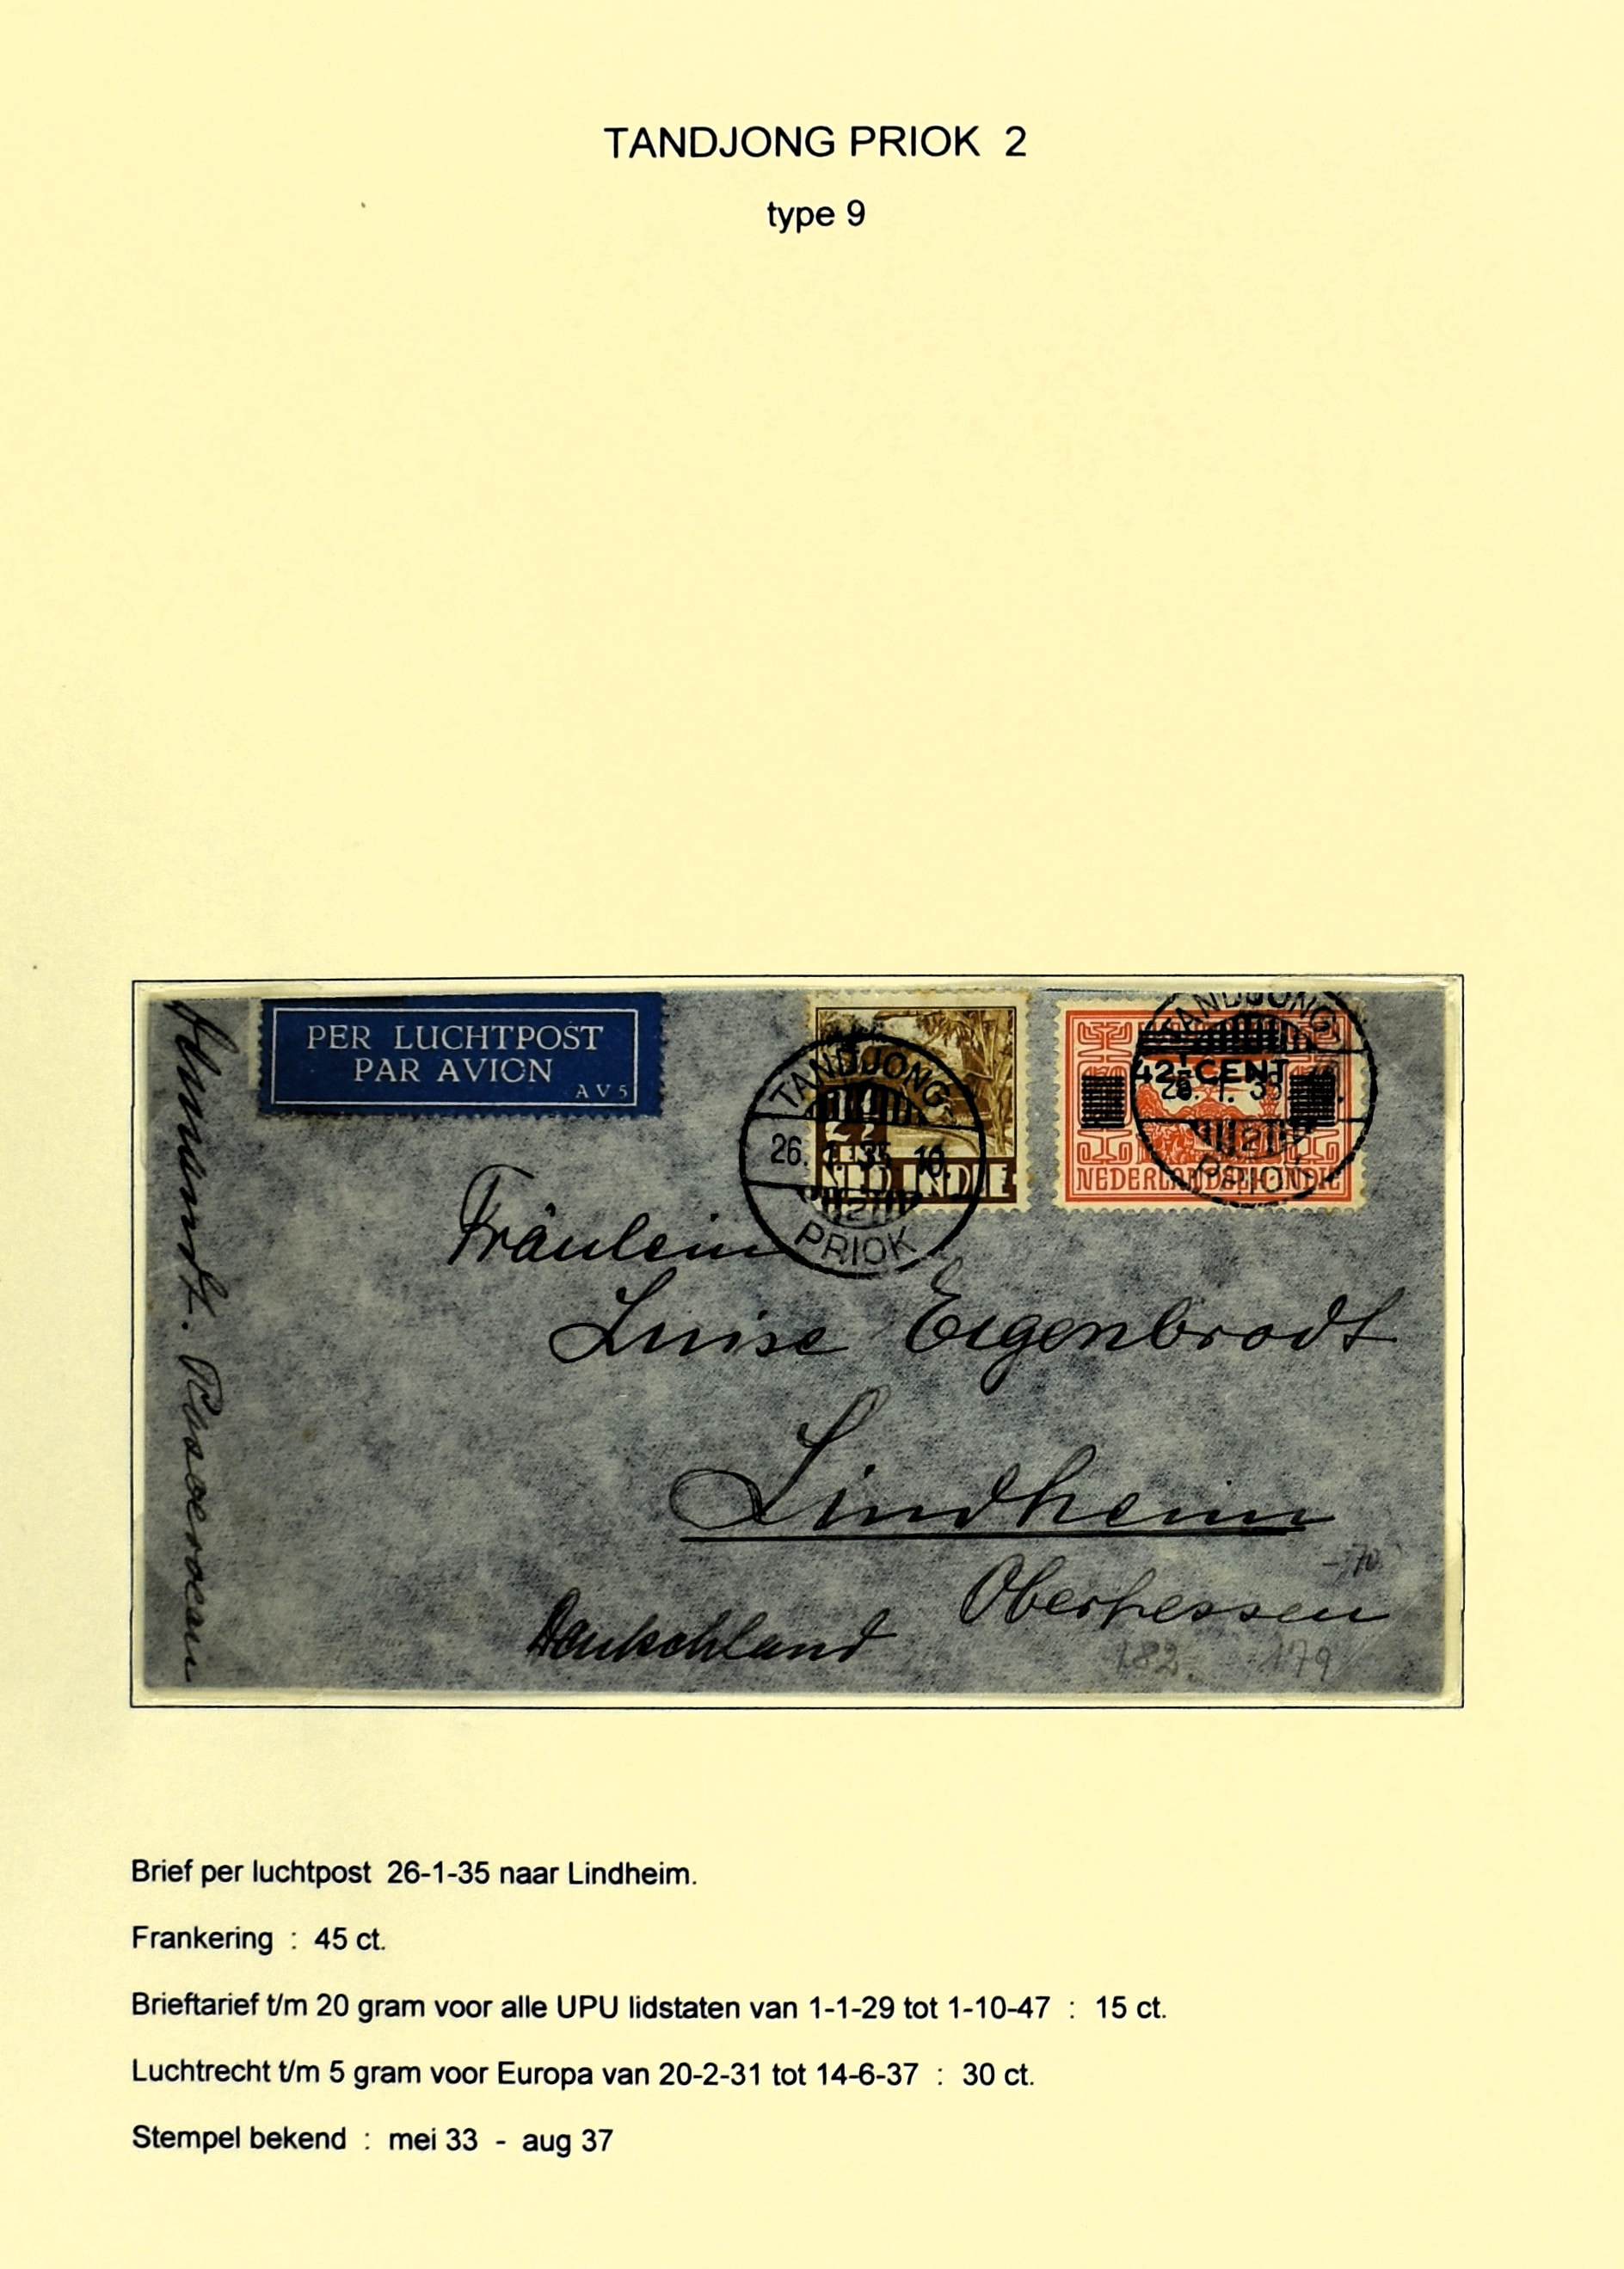 TANDJONG PRIOK 2
type 9
PER LUCHTPOST
PAR AVION
AV5
TANDJONG
26. 1. 35 10.
2
PRIOK
2½
CENT
NED. INDIE
TANDJONG
42½ CENT
2
PRIOK
NEDERLANDSCH-INDIE
Fräulein
Luise Eigenbrodt
Lindheim
Oberhessen
Deutschland
182. 179
Brief per luchtpost 26-1-35 naar Lindheim.
Frankering : 45 ct.
Brieftarief t/m 20 gram voor alle UPU lidstaten van 1-1-29 tot 1-10-47 : 15 ct.
Luchtrecht t/m 5 gram voor Europa van 20-2-31 tot 14-6-37 : 30 ct.
Stempel bekend : mei 33 - aug 37